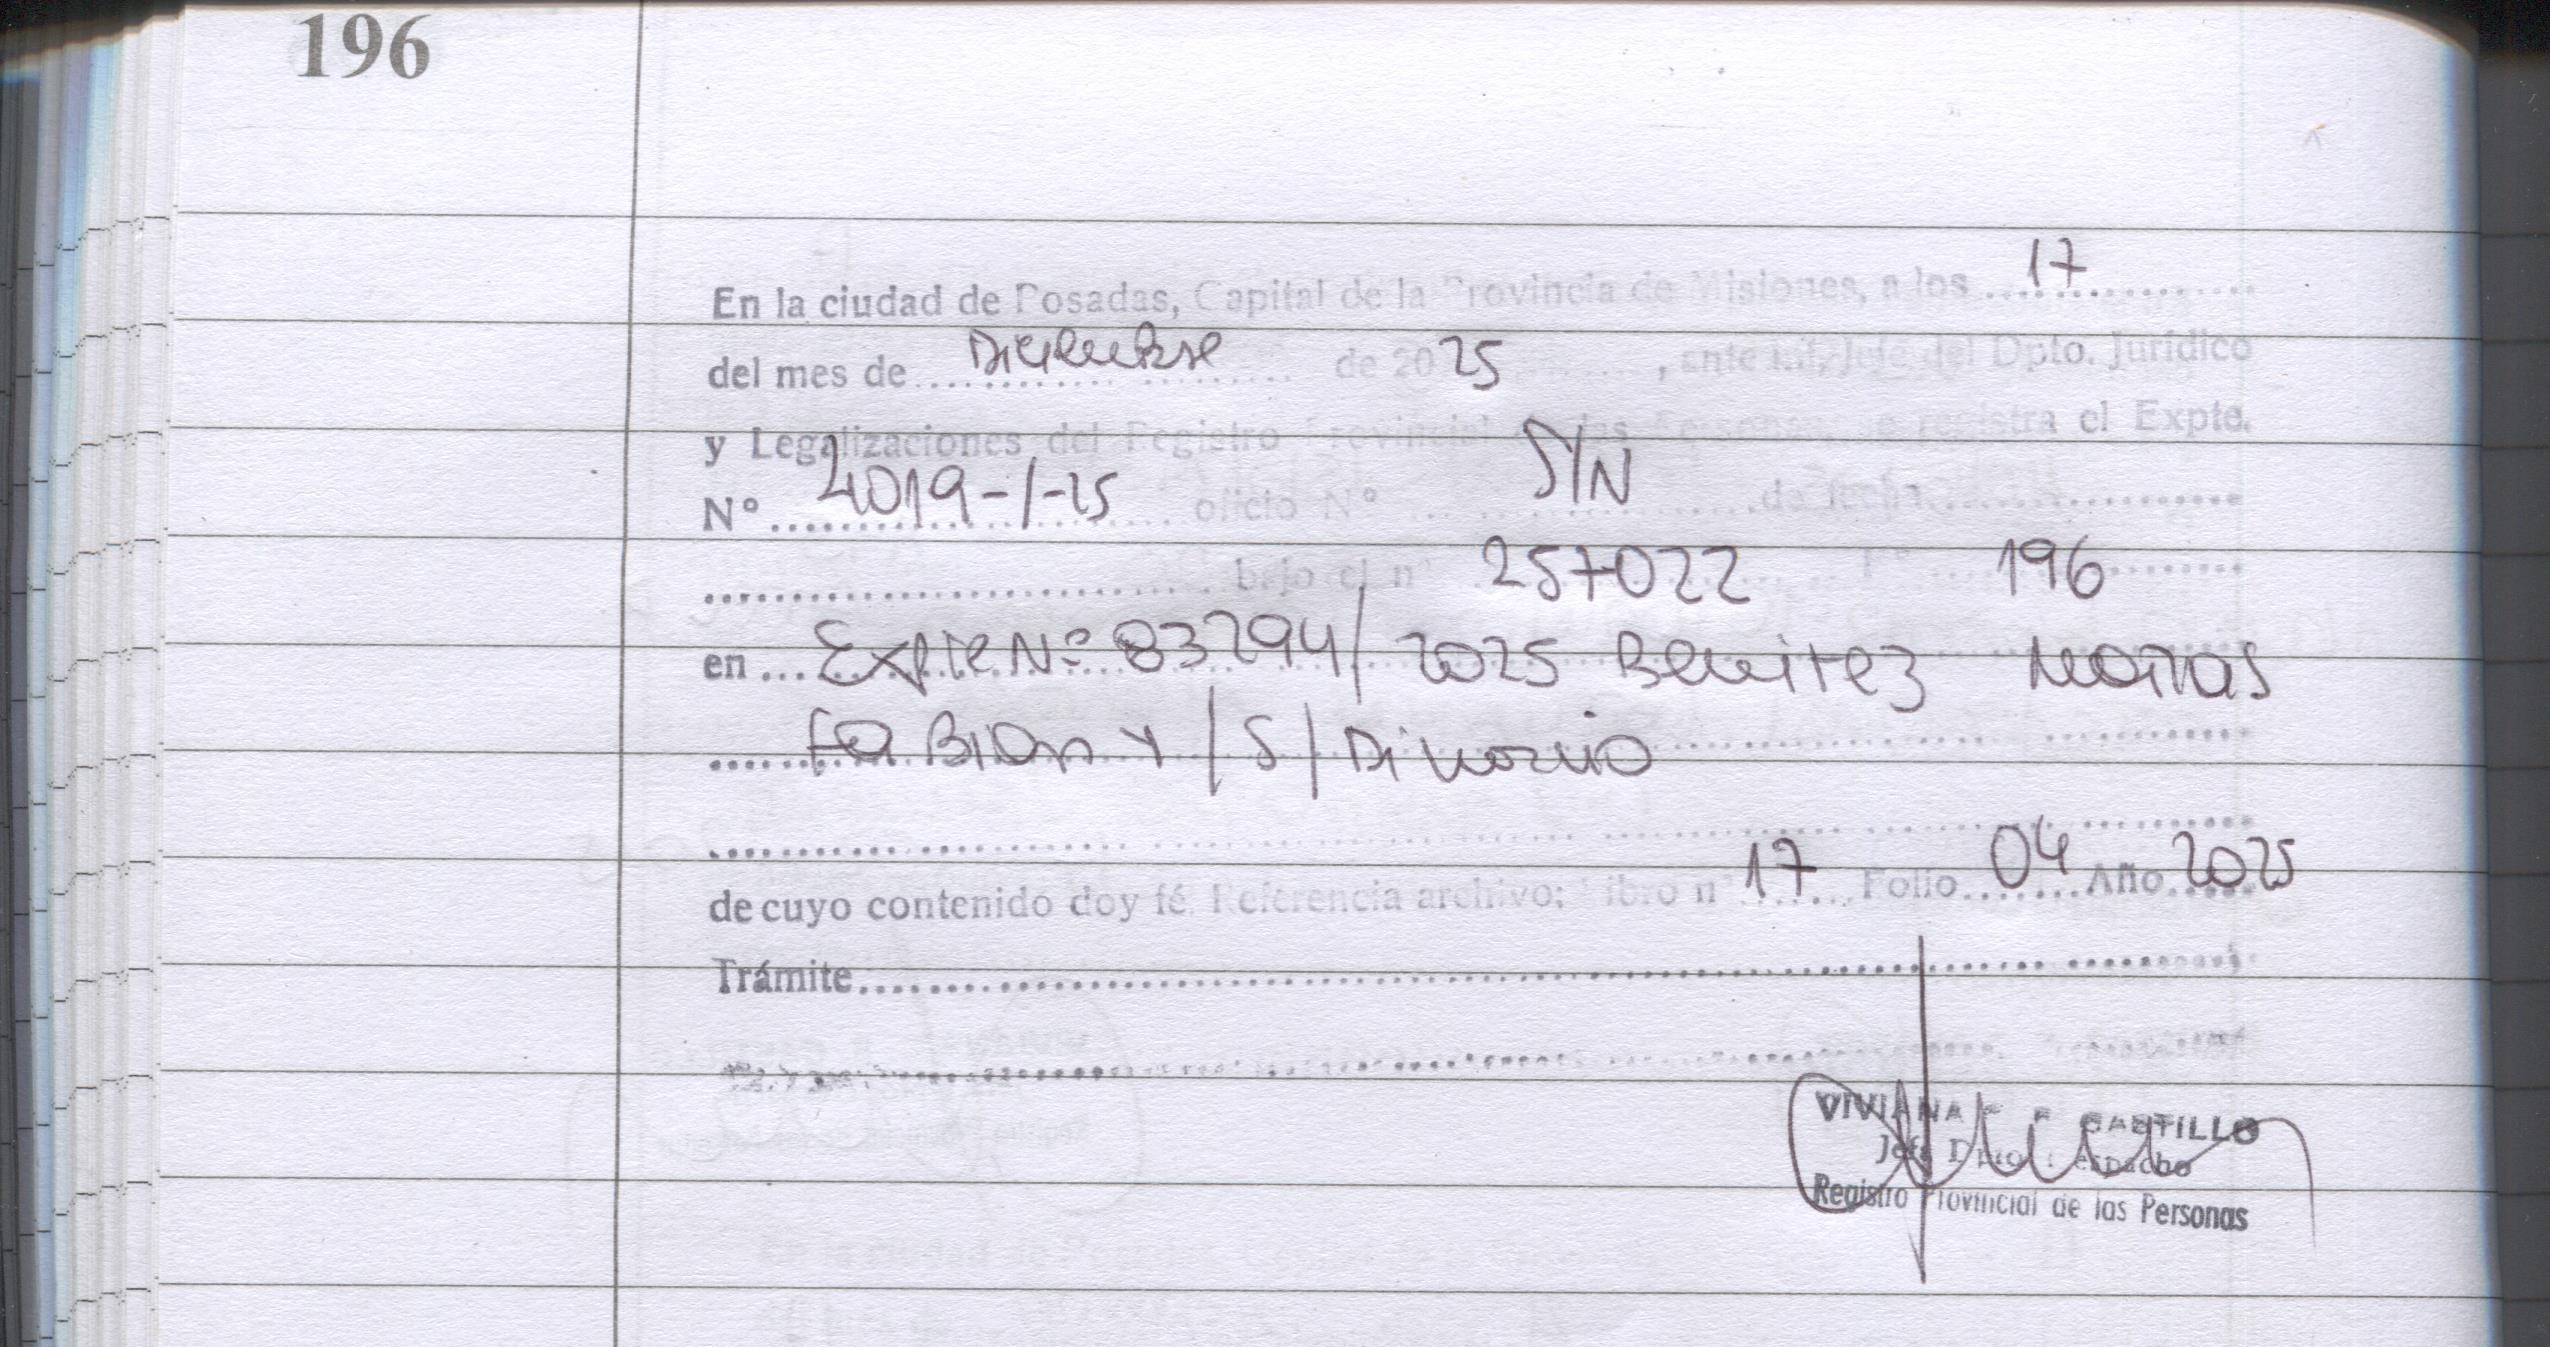 196
En la ciudad de Posadas, Capital de la Provincia de Misiones, a los 17
del mes de Diciembre de 2025, ante mí, Jefe del Dpto. Jurídico
y Legalizaciones del Registro Provincial de las Personas, se registra el Expte.
Nº 4019-1-25 oficio Nº S/N de fecha
bajo el nº 257022 Fº 196
en Expte Nº 83294/2025 Benitez Matias
Fabian y /S/ Divorcio
de cuyo contenido doy fé. Referencia archivo: Libro nº 17 Folio 04 Año 2025
Trámite
VIVIANA CASTILLO
Jefa Dpto Despacho
Registro Provincial de las Personas